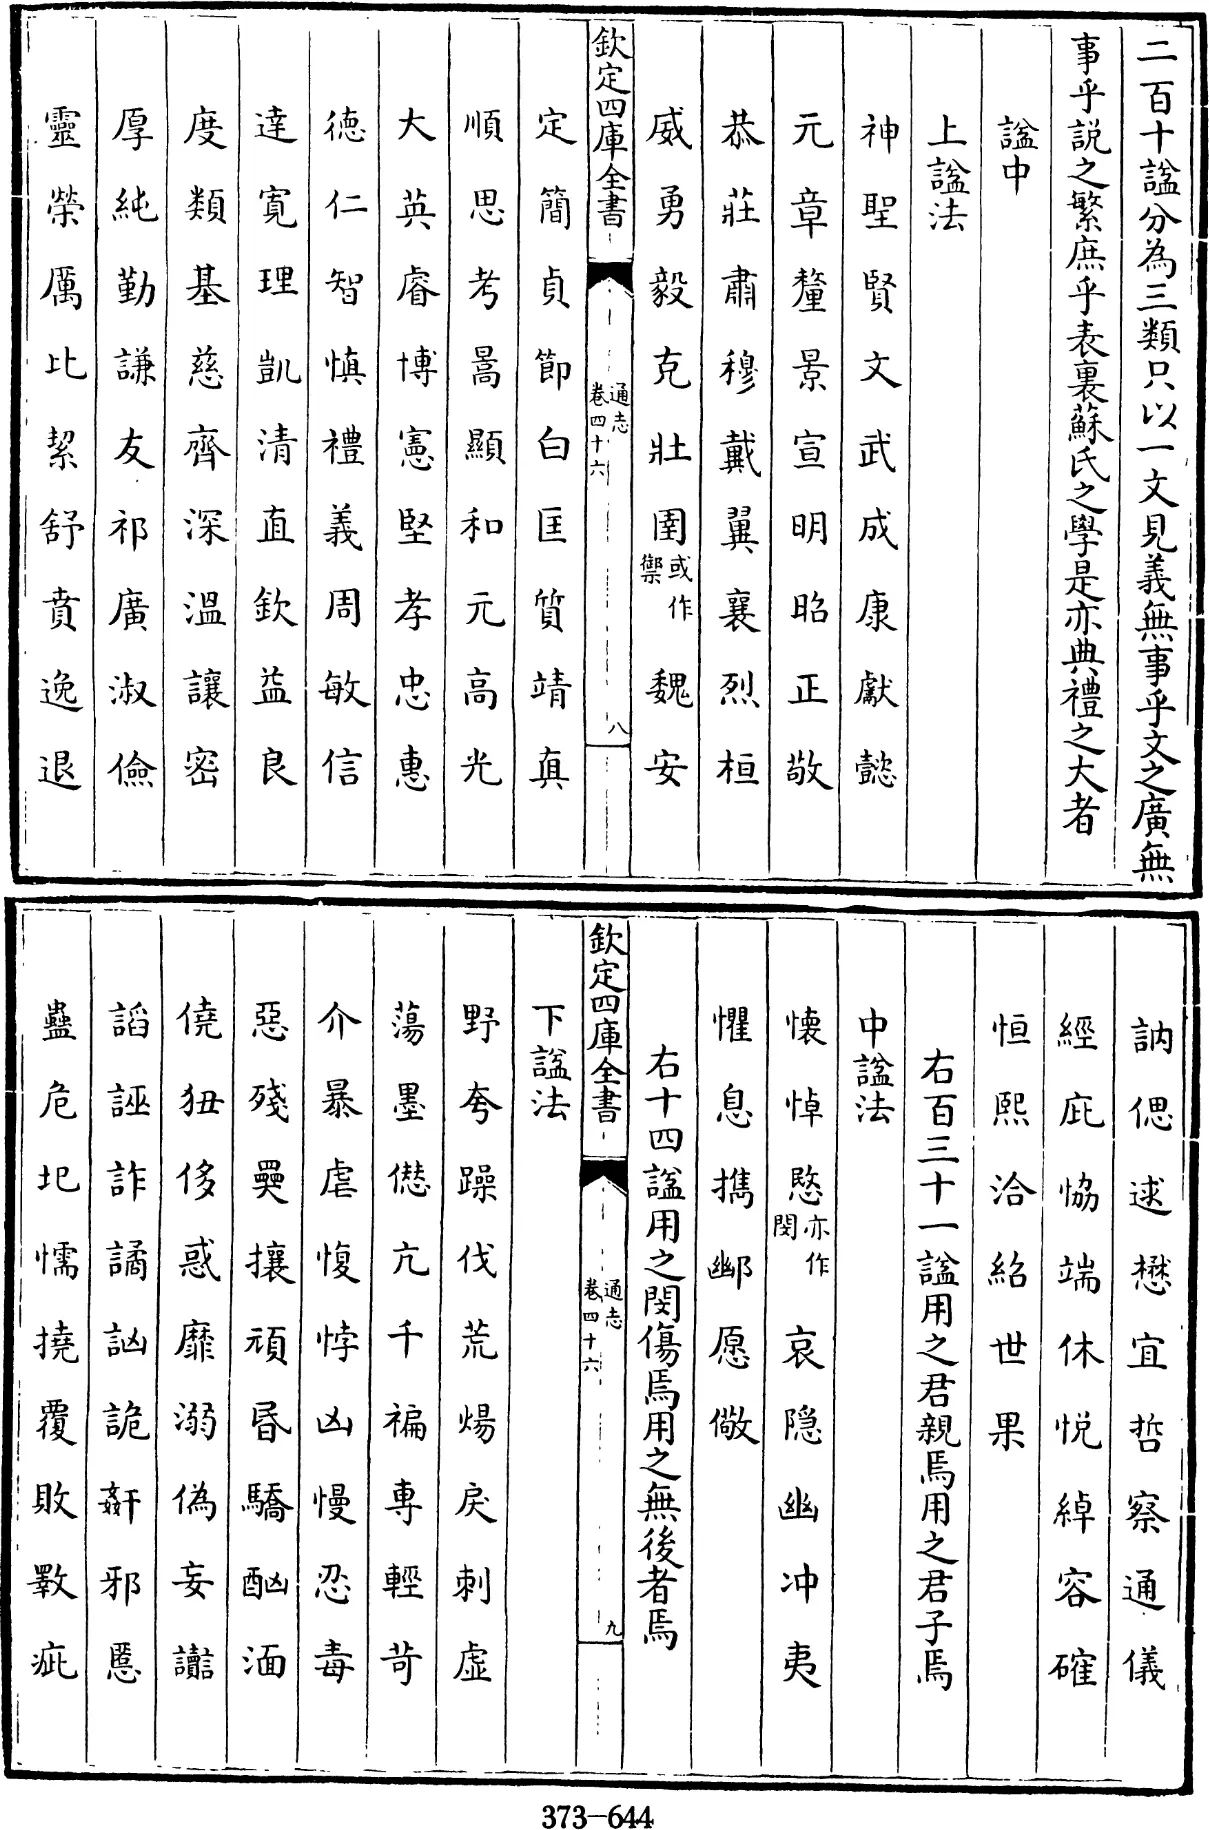 二百十諡分為三類只以一文見義無事乎文之廣無
事乎説之繁庶乎表裏蘇氏之學是亦典禮之大者
諡中
上諡法
神聖賢文武成康獻懿
元章釐景宣明昭正敬
恭莊肅穆戴翼襄烈桓
威勇毅克壯圉或作禦魏安
欽定四庫全書
通志
卷四十六
八
定簡貞節白匡質靖真
順思考暠顯和元高光
大英睿博憲堅孝忠惠
德仁智慎禮義周敏信
達寬理凱清直欽益良
度類基慈齊深溫讓密
厚純勤謙友祁廣淑儉
靈榮厲比絜舒賁逸退
訥偲逑懋宜哲察通儀
經庇恊端休悦綽容確
恒熙洽紹世果
右百三十一諡用之君親焉用之君子焉
中諡法
懐悼愍亦作閔哀隠幽冲夷
懼息攜鄙愿儆
右十四諡用之閔傷焉用之無後者焉
欽定四庫全書
通志
卷四十六
九
下諡法
野夸躁伐荒煬戾刺虚
蕩墨僁亢千褊專輕苛
介暴虐愎悖凶慢忍毒
惡殘奰攘頑昏驕酗湎
僥狃侈惑靡溺偽妄讟
謟誣詐譎訩詭姦邪慝
蠱危圮懦撓覆敗斁疵
373-644